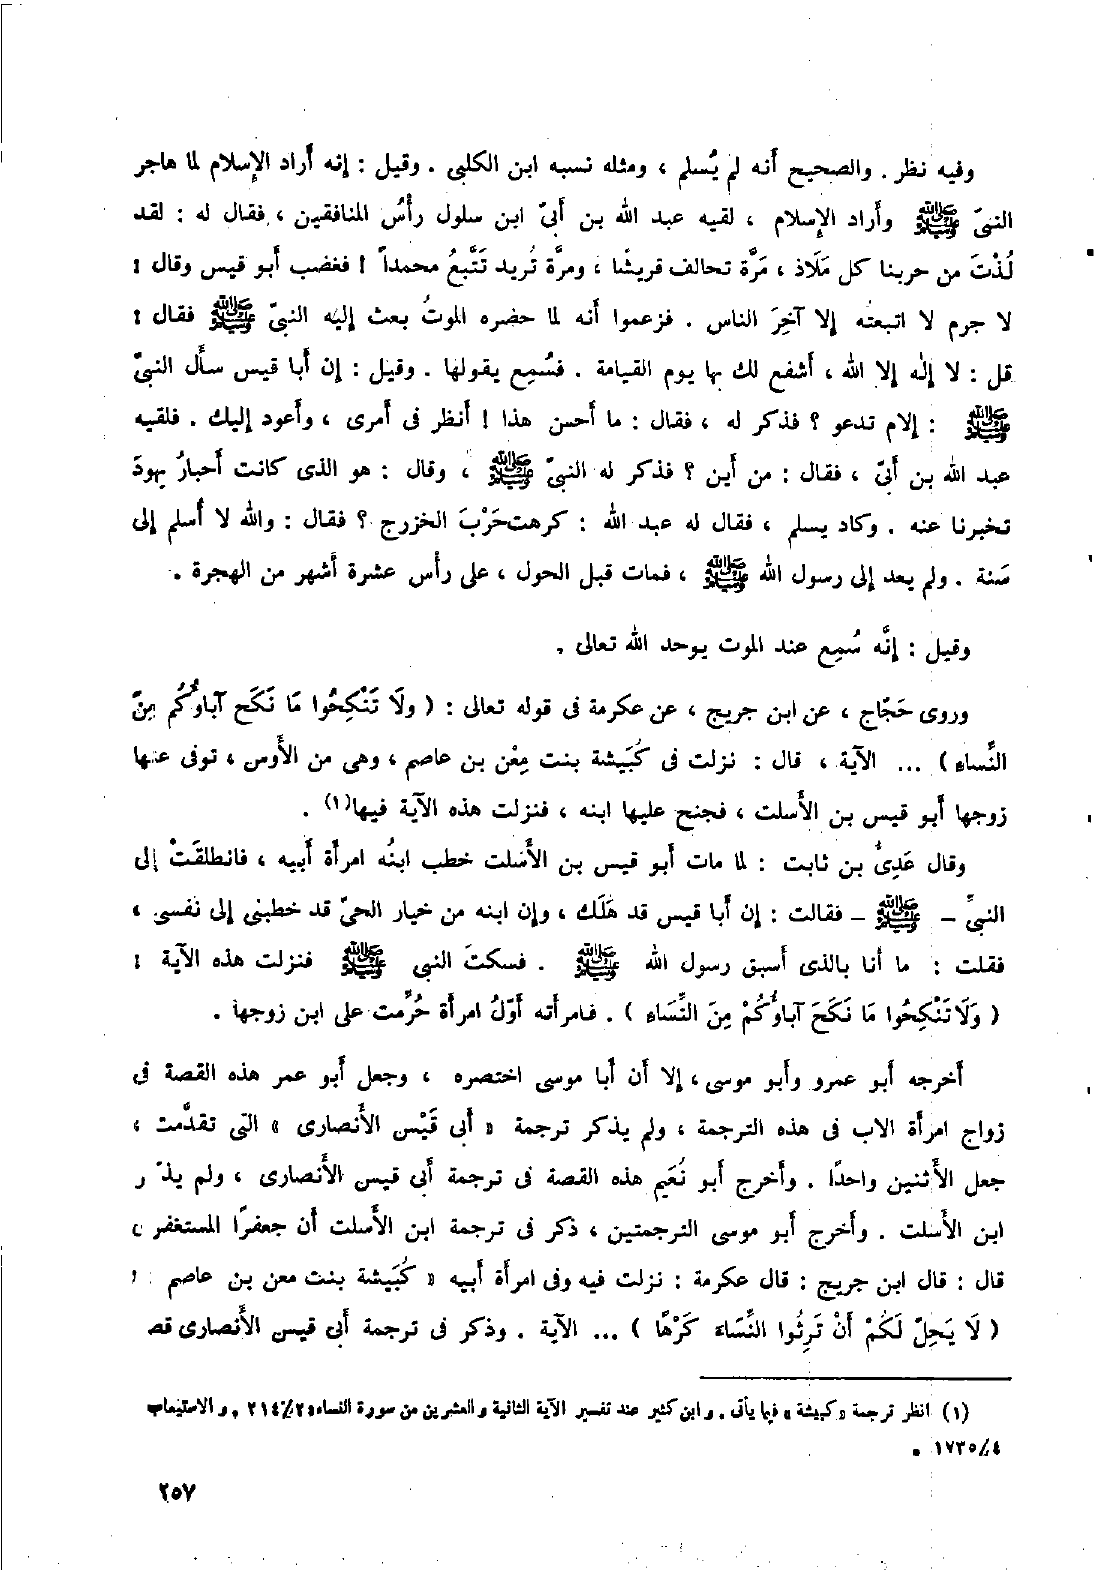 وفيه نظر . والصحيح أنه لم يُسلم ، ومثله نسبه ابن الكلبى . وقيل : إنه أراد الإسلام لما هاجر
النبىّ ﷺ وأراد الإسلام ، لقيه عبد الله بن أبىّ ابن سلول رأسُ المنافقين ، فقال له : لقد
لُذْتَ من حربنا كل مَلَاذ ، مَرَّة تحالف قريشًا ، ومرَّة تُريد تَتَّبعُ محمداً ! فغضب أبو قيس وقال :
لا جرم لا اتبعته إلا آخِرَ الناس . فزعموا أنه لما حضره الموتُ بعث إليه النبىّ ﷺ فقال :
قل : لا إلٰه إلا الله ، أشفع لك بها يوم القيامة . فسُمِع يقولها . وقيل : إن أبا قيس سأل النبىَّ
ﷺ : إلام تدعو ؟ فذكر له ، فقال : ما أحسن هذا ! أنظر فى أمرى ، وأعود إليك . فلقيه
عبد الله بن أبىّ ، فقال : من أين ؟ فذكر له النبىّ ﷺ ، وقال : هو الذى كانت أحبارُ يهودَ
تخبرنا عنه . وكاد يسلم ، فقال له عبد الله : كرهت حَرْبَ الخزرج ؟ فقال : والله لا أسلم إلى
سَنة . ولم يعد إلى رسول الله ﷺ ، فمات قبل الحول ، على رأس عشرة أشهر من الهجرة .
وقيل : إنَّه سُمِع عند الموت يوحد الله تعالى .
وروى حَجّاج ، عن ابن جريج ، عن عكرمة فى قوله تعالى : ( ولَا تَنْكِحُوا مَا نَكَح آباوُكُم مِنَ
النِّساءِ ) ... الآية ، قال : نزلت فى كُبَيشة بنت مِعْن بن عاصم ، وهى من الأوس ، توفى عنها
زوجها أبو قيس بن الأسلت ، فجنح عليها ابنه ، فنزلت هذه الآية فيها(١) .
وقال عَدِىُّ بن ثابت : لما مات أبو قيس بن الأسلت خطب ابنُه امرأة أبيه ، فانطلقَتْ إلى
النبىِّ – ﷺ – فقالت : إن أبا قيس قد هَلَك ، وإن ابنه من خيار الحىّ قد خطبنى إلى نفسى ،
فقلت : ما أنا بالذى أسبق رسول الله ﷺ . فسكتَ النبى ﷺ فنزلت هذه الآية :
( وَلَا تَنْكِحُوا مَا نَكَحَ آباوُكُمْ مِنَ النِّسَاءِ ) . فامرأته أوّلُ امرأة حُرِّمت على ابن زوجها .
أخرجه أبو عمرو وأبو موسى ، إلا أن أبا موسى اختصره ، وجعل أبو عمر هذه القصة فى
زواج امرأة الاب فى هذه الترجمة ، ولم يذكر ترجمة « أبى قَيْس الأنصارى » التى تقدَّمت ،
جعل الأثنين واحدًا . وأخرج أبو نُعَيم هذه القصة فى ترجمة أبى قيس الأنصارى ، ولم يذ ر
ابن الأسلت . وأخرج أبو موسى الترجمتين ، ذكر فى ترجمة ابن الأسلت أن جعفرًا المستغفر ى
قال : قال ابن جريج : قال عكرمة : نزلت فيه وفى امرأة أبيه « كُبَيشة بنت معن بن عاصم :
( لَا يَحِلّ لَكُمْ أَنْ تَرِثُوا النِّسَاءَ كَرْهًا ) ... الآية . وذكر فى ترجمة أبى قيس الأنصارى قص
(١) انظر ترجمة « كبيشة » فيما يأتى . وابن كثير عند تفسير الآية الثانية والعشرين من سورة النساء ٢١٤/٢ . والاستيعاب
١٧٣٥/٤ .
٢٥٧